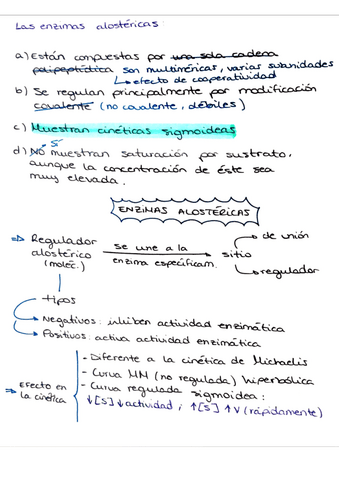 Las enzimas alostéricas:
a) Están compuestas por una sola cadena
polipeptídica son multiméricas, varias subunidades
↳ efecto de cooperatividad
b) Se regulan principalmente por modificación
covalente (no covalente, débiles)
c) Muestran cinéticas sigmoideas
sí
d) NO muestran saturación por sustrato,
aunque la concentración de éste sea
muy elevada.
ENZIMAS ALOSTÉRICAS
⇒ Regulador alostérico (moléc.)
se une a la
enzima específicam.
sitio
de unión
regulador
tipos
Negativos: inhiben actividad enzimática
Positivos: activa actividad enzimática
⇒ Efecto en la cinética
- Diferente a la cinética de Michaelis
- Curva MM (no regulada) hiperbólica
- Curva regulada sigmoidea:
↓[S] ↓actividad ; ↑[S] ↑V (rápidamente)